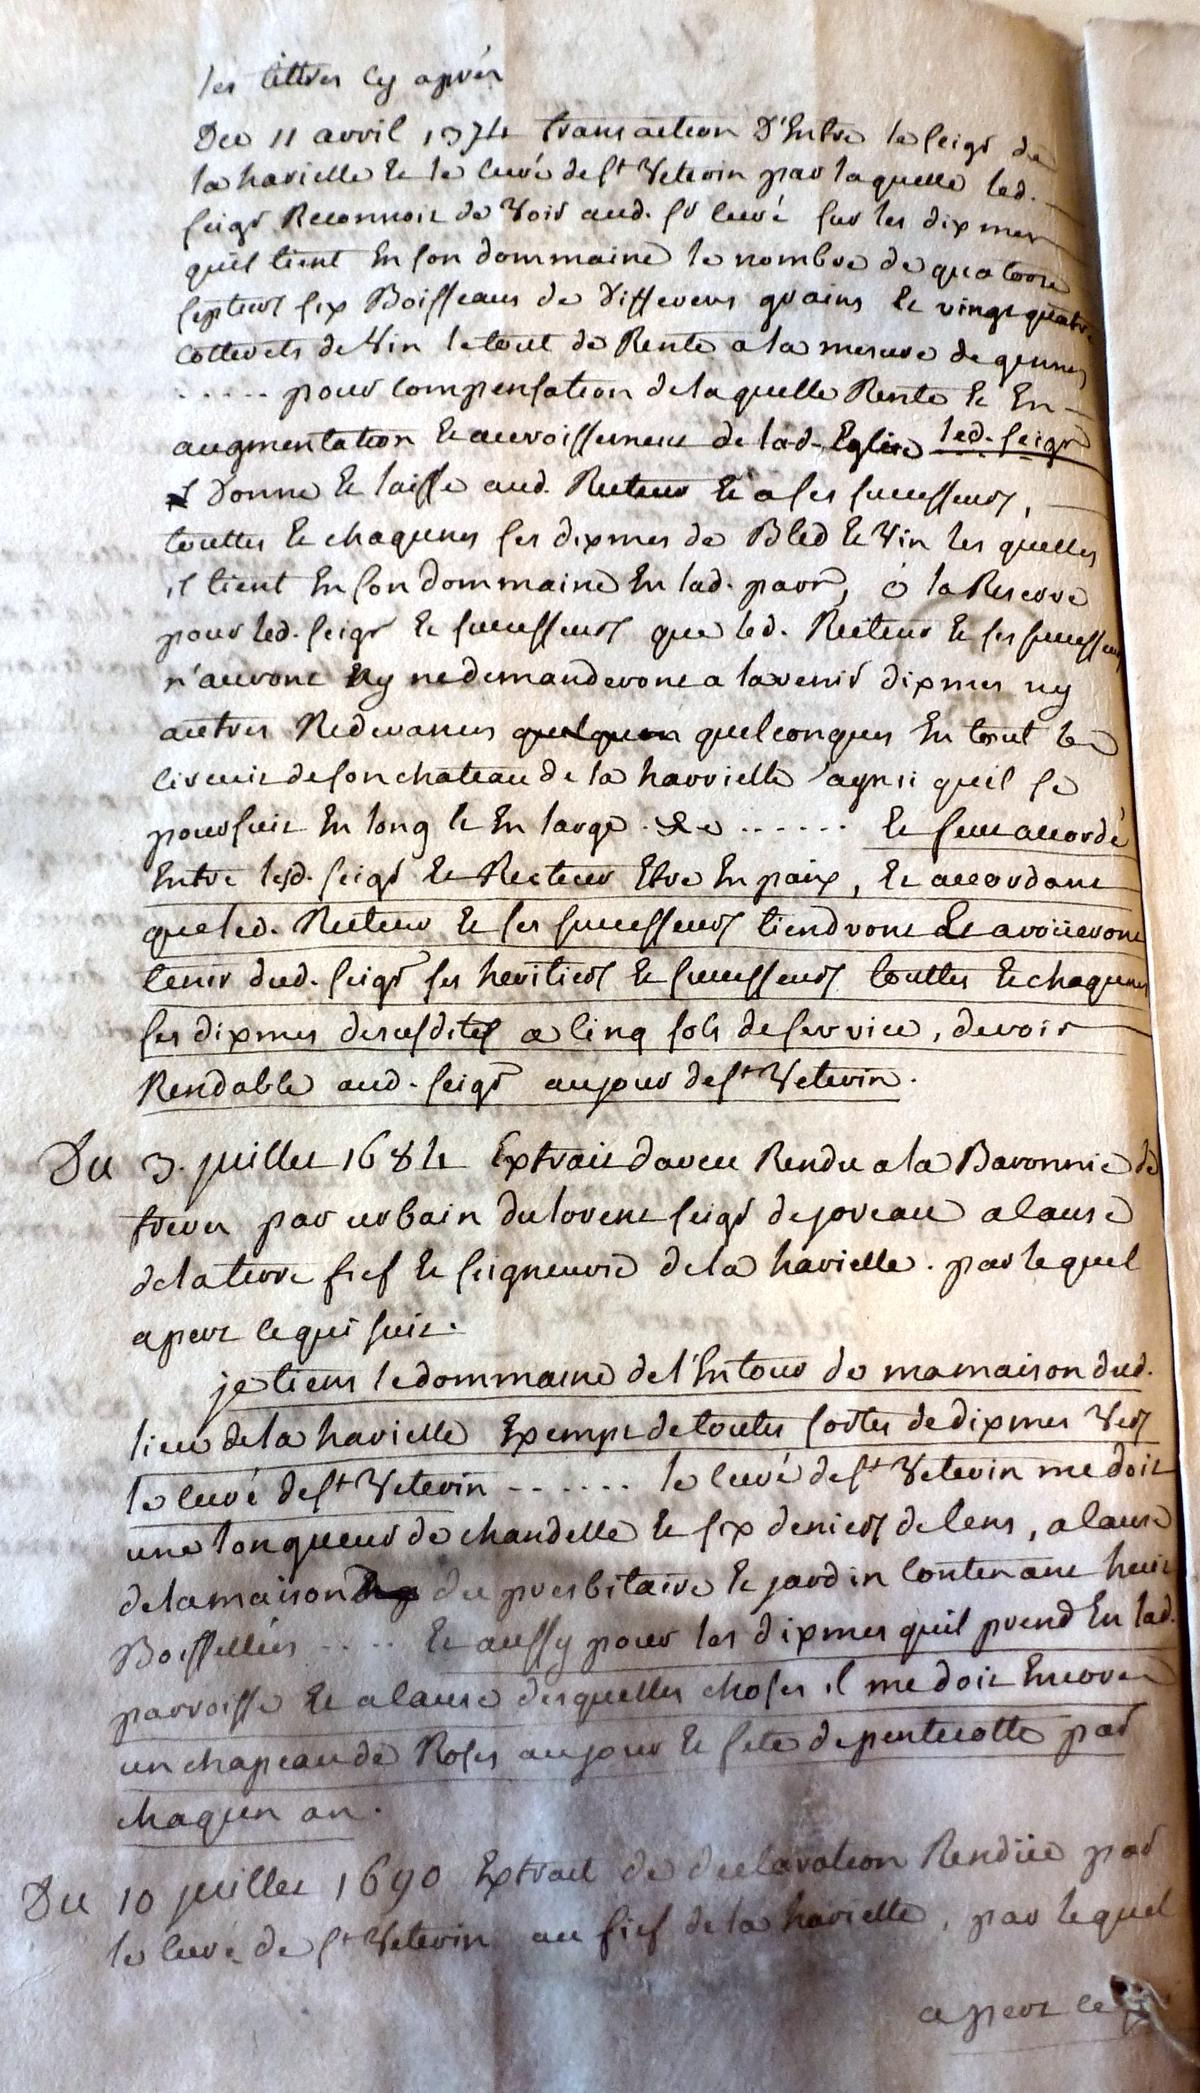 les tittres cy aprés
Du 11 avril 1374 transaction D'Entre le seigr de
la harielle & le curé de st Veterin par laquelle led.
seigr Reconnoit de Voir aud. sr curé sur les dixmes
quil tient En son dommaine le nombre de quatorze
septiers six Boisseaux de Differens grains Et vingt quatre
cotterets de Vin le tout de Rente a la mesure de gennes
..... pour compensation de laquelle Rente & En
augmentation & accroissement de lad. Eglise led. seigr
Donne & laisse aud. Recteur & a ses successeurs,
touttes & chaqunes ses dixmes de Bled & Vin les quelles
il tient En son dommaine En lad. parr, ó la Reserve
pour led. seigr & successeurs que led. Recteur & ses successeurs
n'auront Ny ne demanderont a lavenir dixmes ny
autres Redevances quelques quelconques En tout le
circuit de son chateau de la harrielle aynsi quil se
poursuit En long & En large. &c ...... Et feut accordé
Entre lesd. seigr & Recteur Etre En paix, Et accordant
que led. Recteur & ses successeurs tiendront & avoüeront
tenir dud. seigr ses heritiers & successeurs touttes & chaqunes
ses dixmes desusdites a cinq sols de service, devoir
Rendable aud. seigr au jour de st Veterin.
Du 3. juillet 1684 Extrait daveu Rendu a la Baronnie de
treves par urbain du lorent seigr de joreau a cause
de la terre fief & seigneurie de la harielle. par lequel
apert ce qui suit.
je tiens le dommaine de l'Entour de ma maison dud.
lieu de la harielle Exempt de toutes sortes de dixmes Vers
le curé de st Veterin ...... le curé de st Veterin me doit
une longueur de chandelle & six deniers de cens, a cause
de la maison du presbitaire & jardin contenant huit
Boissellées .... Et aussy pour les dixmes quil prend En lad.
parroisse Et a cause desquelles choses il me doit Encore
un chapeau de Roses au jour & fete de pentecotte par
chaqun an.
Du 10 juillet 1690 Extrait de declaration Rendüe par
le curé de st Veterin au fief de la harielle, par lequel
apert ce